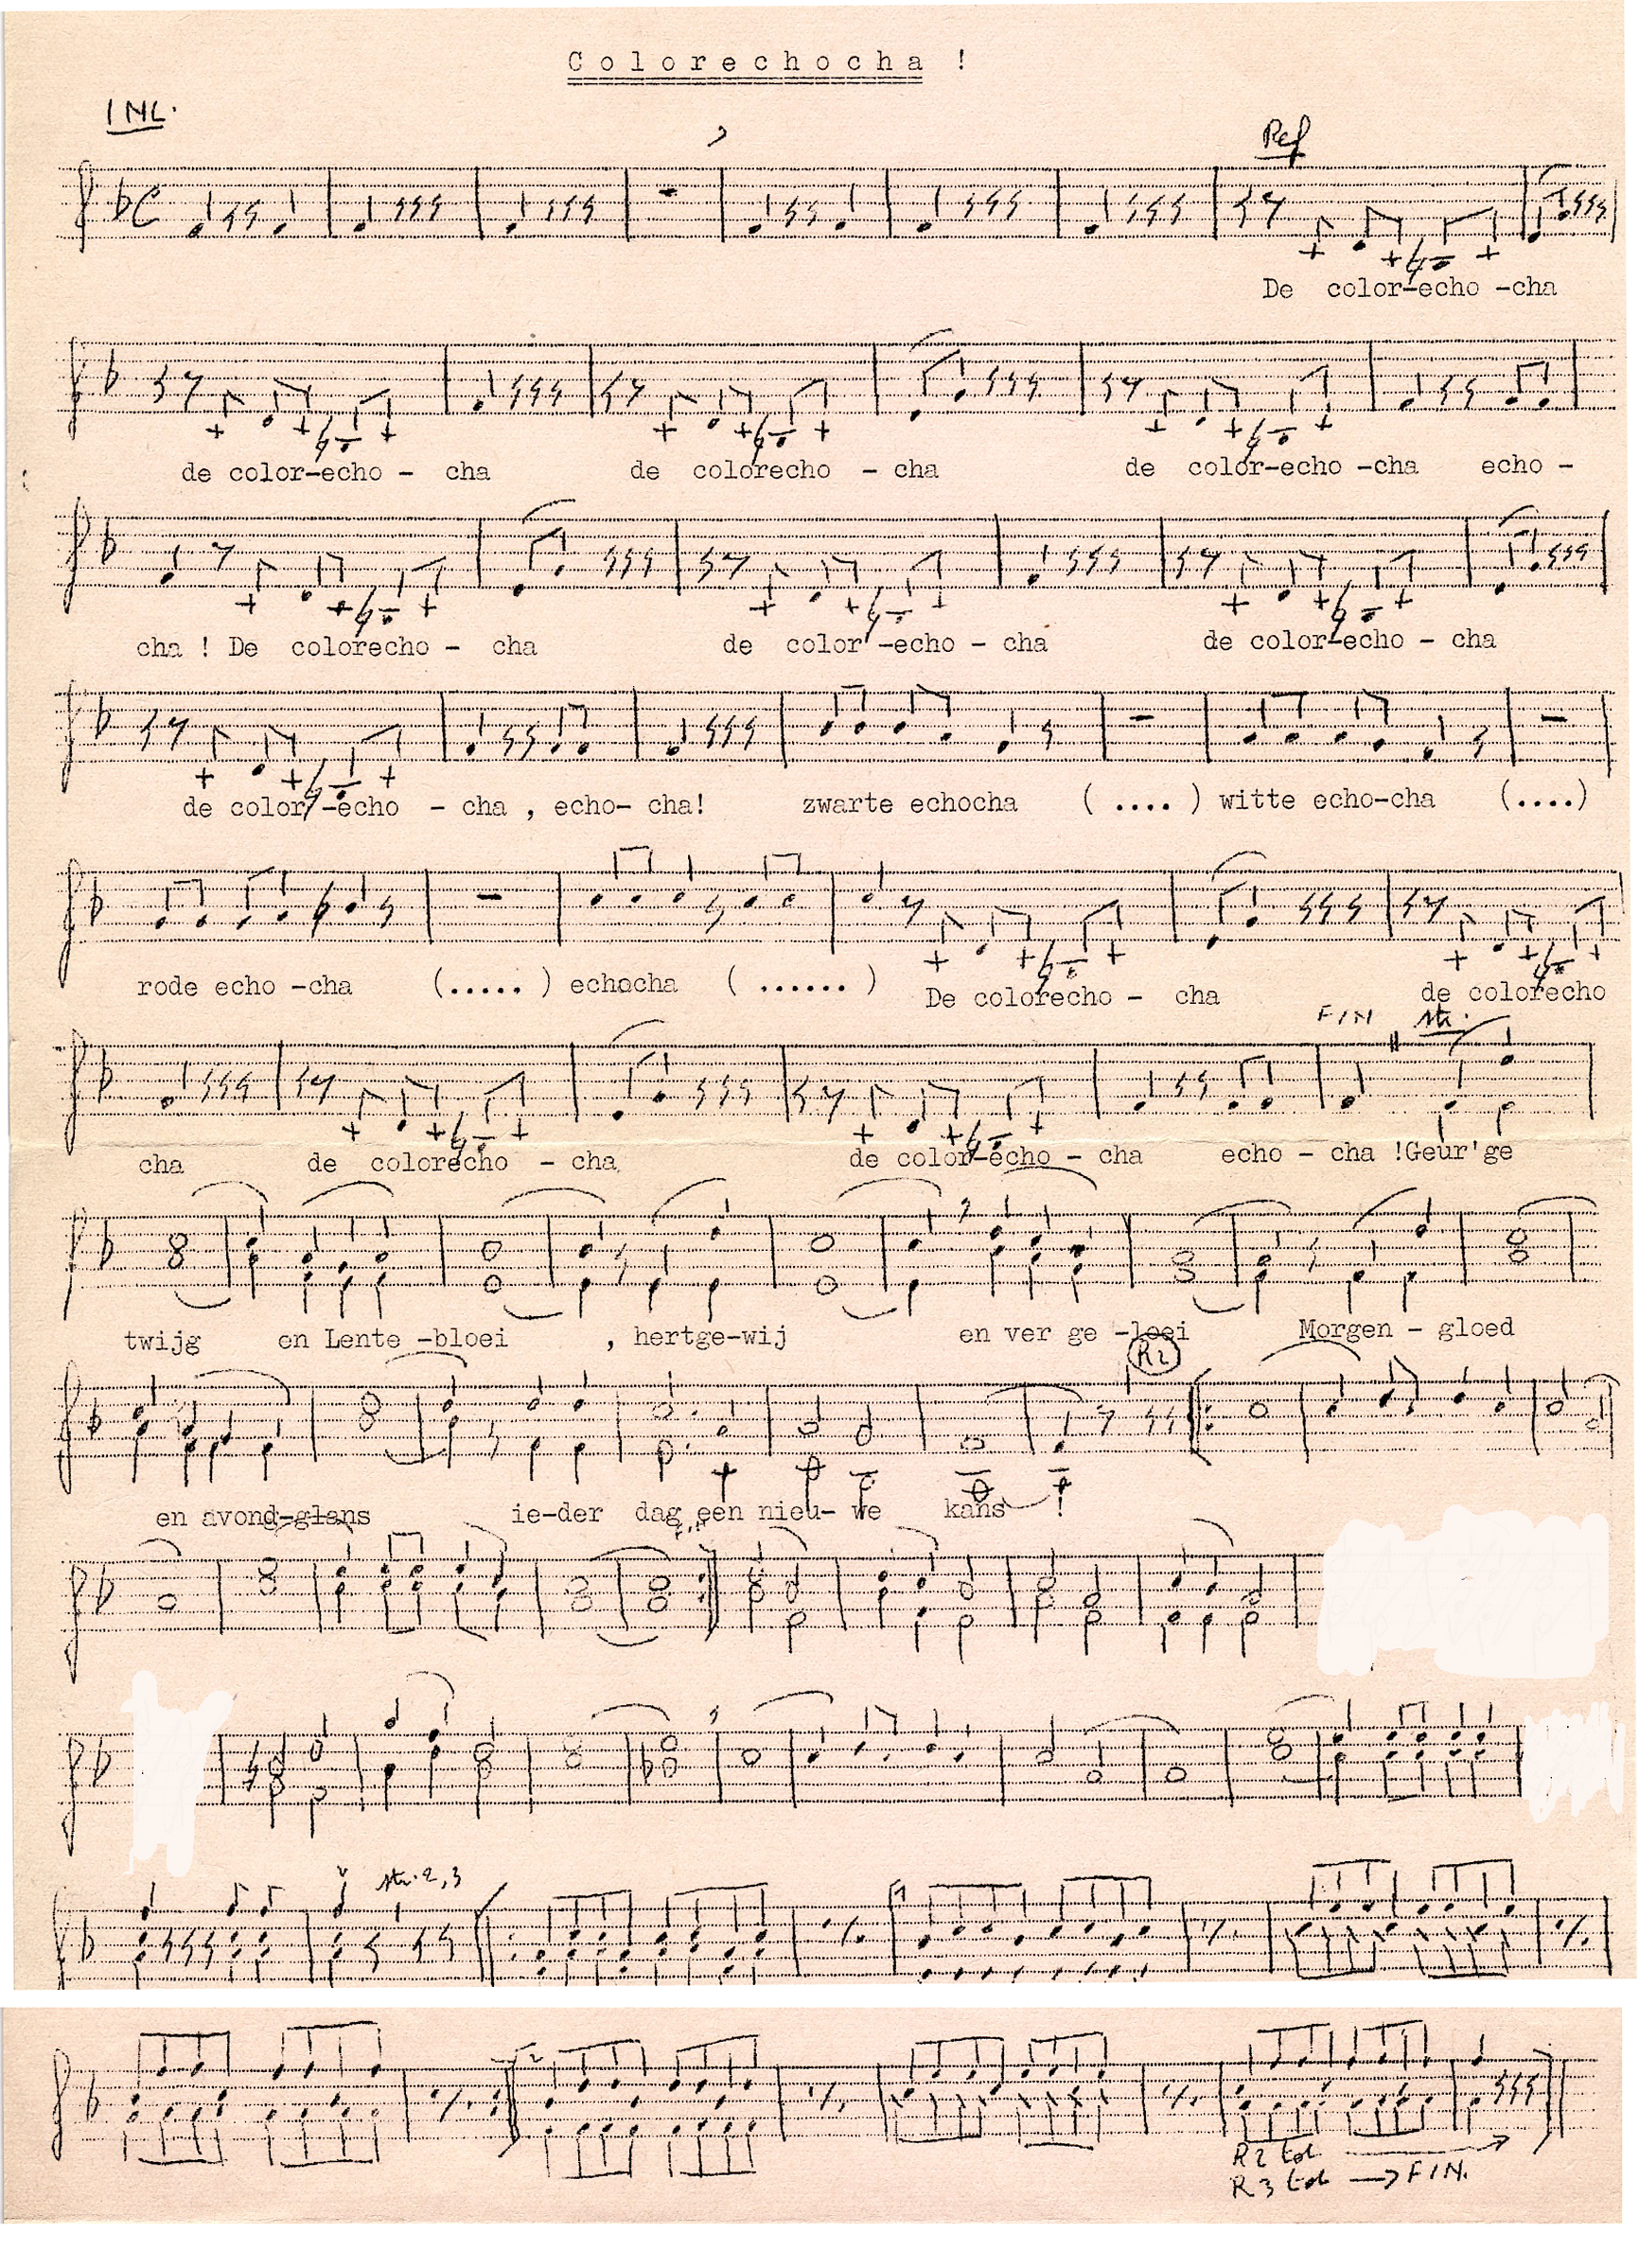 Colorechocha !
INL.
Ref
De color-echo -cha
de color-echo - cha de colorecho - cha de color-echo -cha echo -
cha ! De colorecho - cha de color'-echo - cha de color-echo - cha
de color/-echo - cha , echo- cha! zwarte echocha ( .... ) witte echo-cha (....)
rode echo -cha (..... ) echocha ( ...... ) De colorecho - cha de colorecho
FIN str.
cha de colorecho - cha de color-echo - cha echo - cha !Geur'ge
twijg en Lente -bloei , hertge-wij en ver ge -loei Morgen - gloed
R2
en avond-glans ie-der dag een nieu- we kans !
str. 2,3
1
2
R2 tot
R3 tot → FIN.